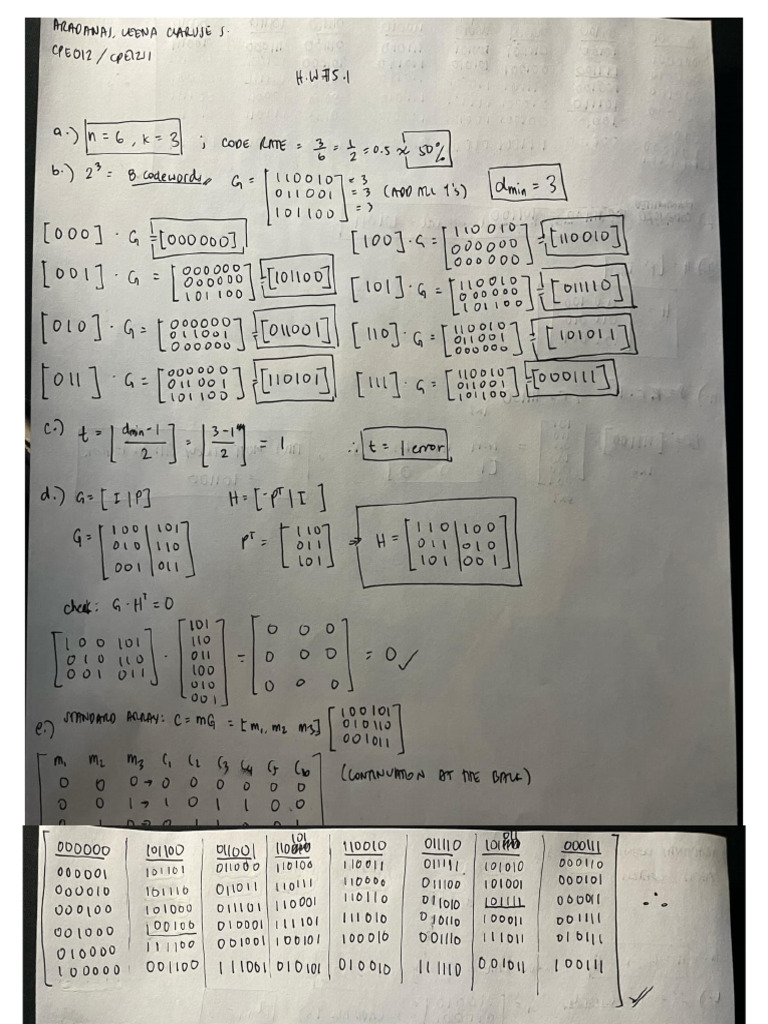 ARADANAS, LEENA CLARUSE S.
CPE012 / CPE1211
H.W #5.1
a.) n = 6, k = 3 ; CODE RATE = 3/6 = 1/2 = 0.5 ≈ 50%
b.) 2³ = 8 codewords
G = [110010 = 3
011001 = 3 (ADD ALL 1's)
101100] = 3
dmin = 3
[000] · G = [000000]
[100] · G = [110010 000000 000000] = [110010]
[001] · G = [000000 000000 101100] = [101100]
[101] · G = [110010 000000 101100] = [011110]
[010] · G = [000000 011001 000000] = [011001]
[110] · G = [110010 011001 000000] = [101011]
[011] · G = [000000 011001 101100] = [110101]
[111] · G = [110010 011001 101100] = [000111]
c.) t = ⌊dmin - 1 / 2⌋ = ⌊3 - 1 / 2⌋ = 1 ∴ t = 1 error
d.) G = [I | P] H = [-Pᵀ | I]
G = [100 | 101
010 | 110
001 | 011]
Pᵀ = [110
011
101]
⇒ H = [110 | 100
011 | 010
101 | 001]
check: G · Hᵀ = 0
[100 101
010 110
001 011]
· [101
110
011
100
010
001]
= [0 0 0
0 0 0
0 0 0] = 0 ✓
e.) STANDARD ARRAY: C = mG = [m₁, m₂ m₃] [100101
010110
001011]
m₁ m₂ m₃ C₁ C₂ C₃ C₄ C₅ C₆
0 0 0 → 0 0 0 0 0 0
0 0 1 → 1 0 1 1 0 0
(CONTINUATION AT THE BACK)
000000 101100 011001 110101 110010 011110 101011 000111
000001 101101 011000 110100 110011 011111 101010 000110
000010 101110 011011 110111 110000 011100 101001 000101
000100 101000 011101 110001 110110 011010 101111 000011
001000 100100 010001 111101 111010 010110 100011 001111
010000 111100 001001 100101 100010 001110 111011 010111
100000 001100 111001 010101 010010 111110 001011 100111
∴
✓